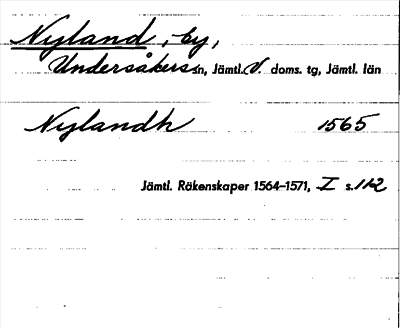 Nyland, by,
Undersåkers sn, Jämtl. V. doms. tg, Jämtl. län
Nylandh 1565
Jämtl. Räkenskaper 1564–1571, I s. 112